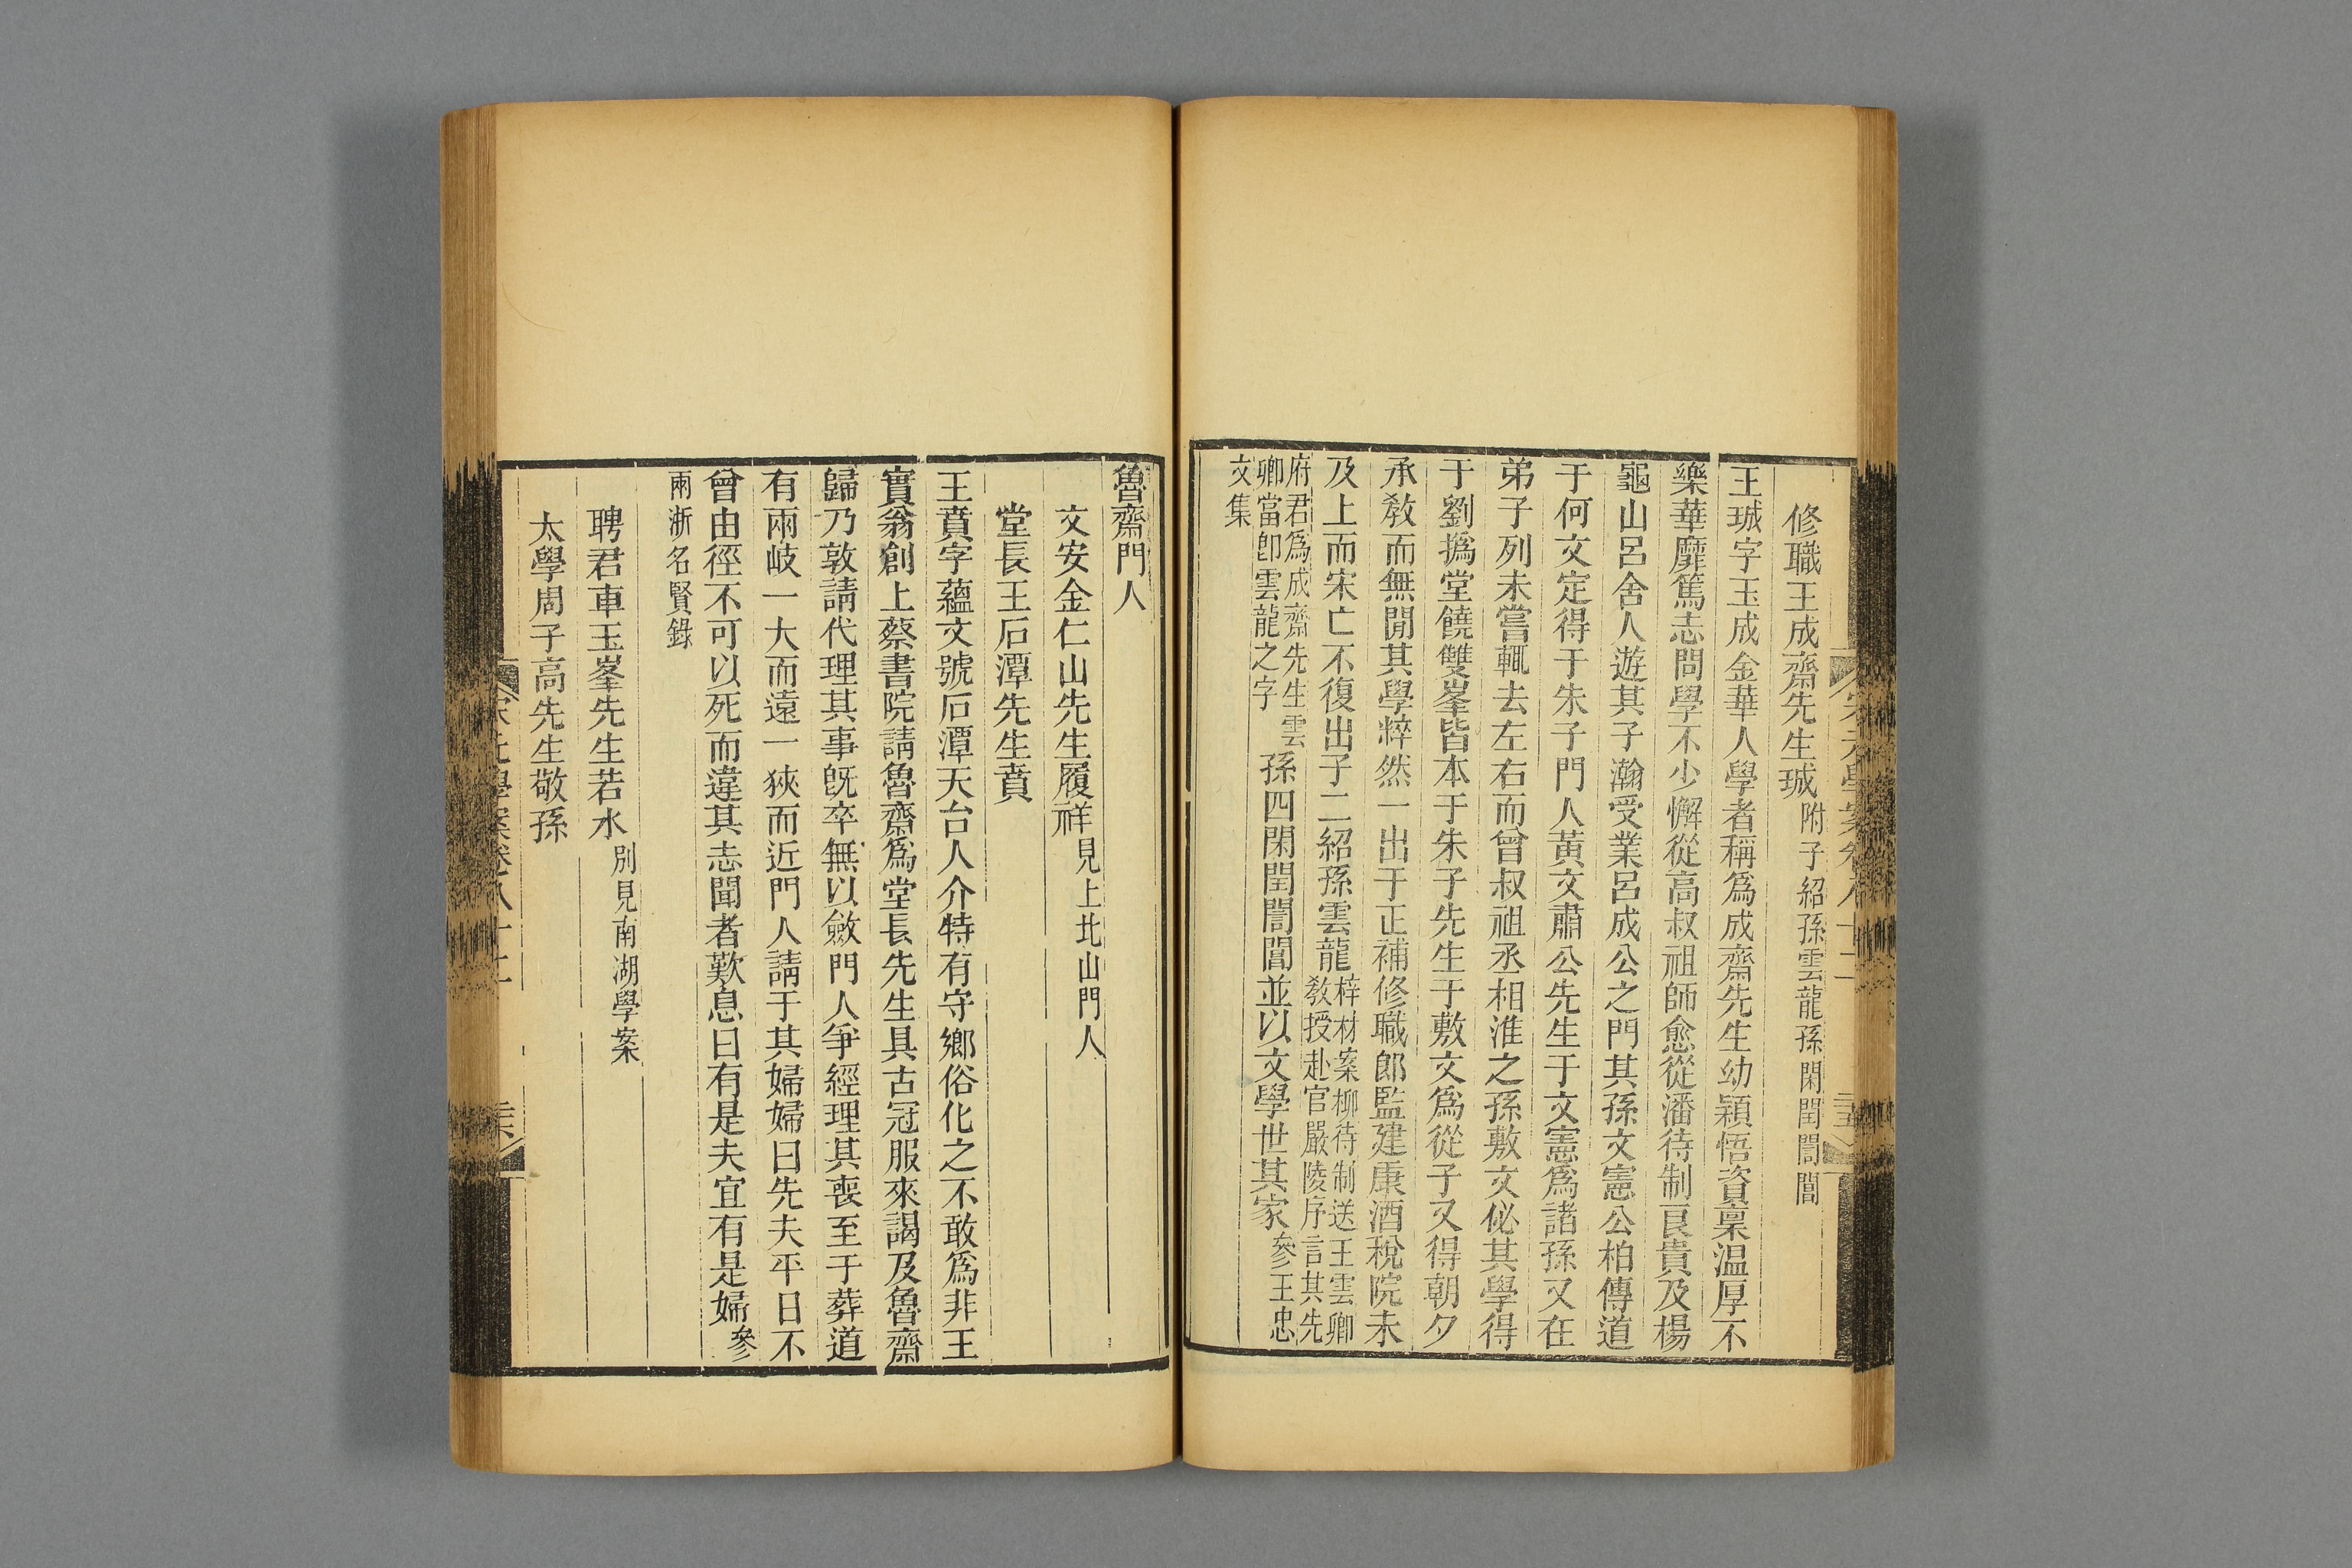 修職王成齋先生珹附子紹孫雲龍孫閑閏誾誾
王珹字玉成金華人學者稱爲成齋先生幼穎悟資稟温厚不
樂華靡篤志問學不少懈從高叔祖師愈從潘待制良貴及楊
龜山呂舍人遊其子瀚受業呂成公之門其孫文憲公柏傳道
于何文定得于朱子門人黃文肅公先生于文憲爲諸孫又在
弟子列未嘗輒去左右而曾叔祖丞相淮之孫敷文佖其學得
于劉撝堂饒雙峯皆本于朱子先生于敷文爲從子又得朝夕
承敎而無閒其學粹然一出于正補修職郎監建康酒稅院未
及上而宋亡不復出子二紹孫雲龍梓材案柳待制送王雲卿
敎授赴官嚴陵序言其先
府君爲成齋先生雲
卿當卽雲龍之字孫四閑閏誾誾並以文學世其家參王忠
文集
魯齋門人
文安金仁山先生履祥見上北山門人
堂長王石潭先生賁
王賁字蘊文號石潭天台人介特有守鄉俗化之不敢爲非王
實翁創上蔡書院請魯齋爲堂長先生具古冠服來謁及魯齋
歸乃敦請代理其事旣卒無以斂門人爭經理其喪至于葬道
有兩岐一大而遠一狹而近門人請于其婦婦曰先夫平日不
曾由徑不可以死而違其志聞者歎息曰有是夫宜有是婦參
兩浙名賢錄
聘君車玉峯先生若水別見南湖學案
太學周子高先生敬孫